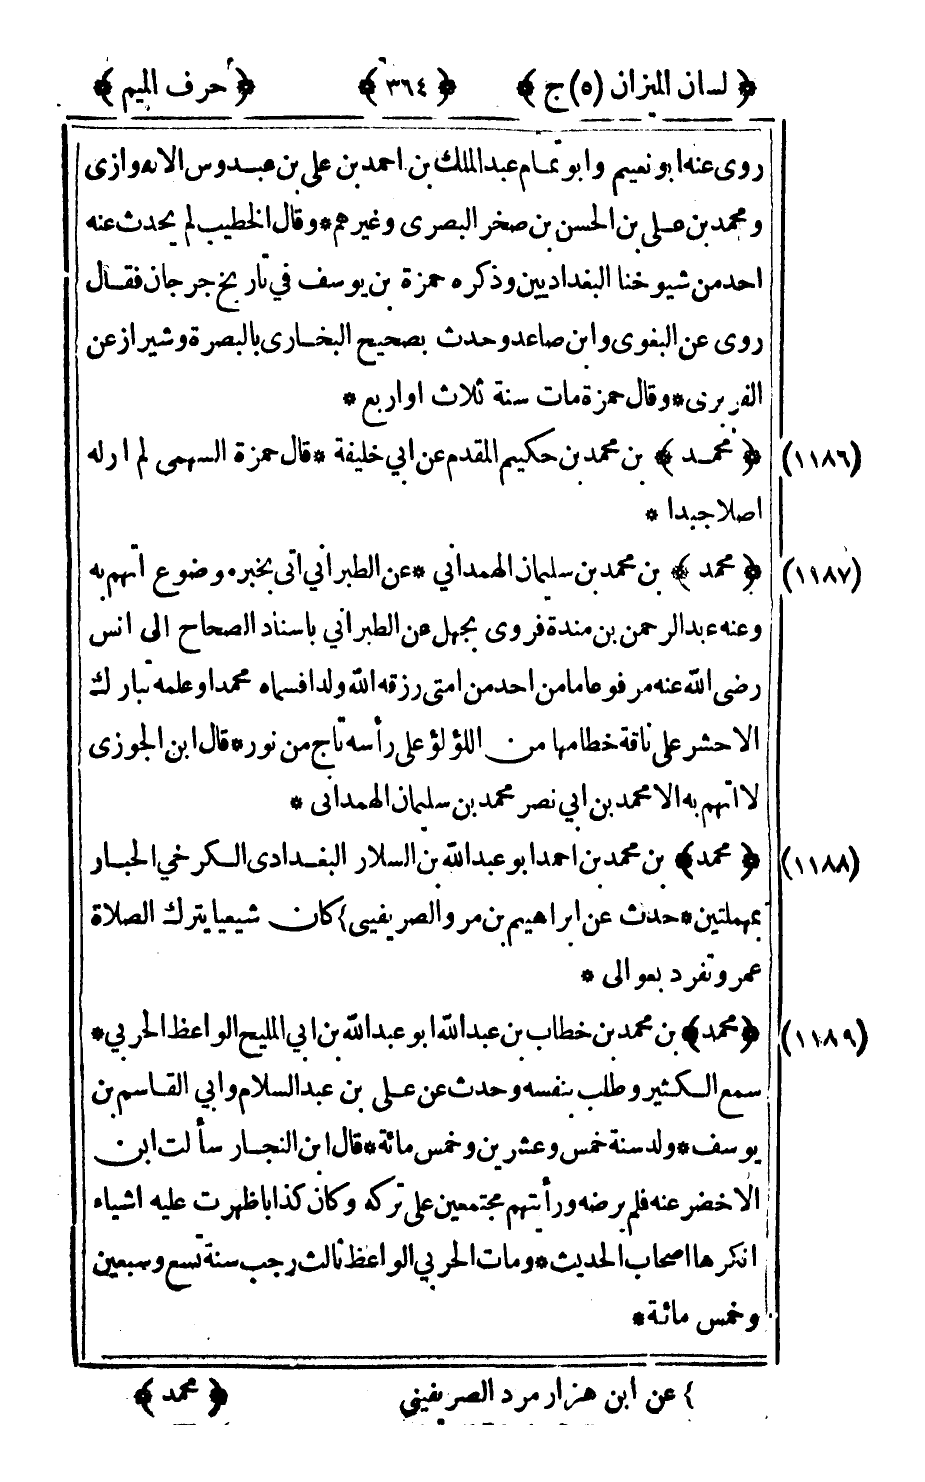 ﴿ لسان الميزان (٥) ج ﴾ ﴿ ٣٦٤ ﴾ ﴿ حرف الميم ﴾
روى عنه ابو نعيم وابو تمام عبد الملك بن احمد بن علي بن عبدوس الاهوازى
ومحمد بن علي بن الحسن بن صخر البصرى وغيرهم * وقال الخطيب لم يحدث عنه
احد من شيوخنا البغداديين وذكره حمزة بن يوسف في تاريخ جرجان فقال
روى عن البغوى وابن صاعد وحدث بصحيح البخارى بالبصرة وشيراز عن
الفربرى * وقال حمزة مات سنة ثلاث او اربع *
(١١٨٦) ﴿ محمد ﴾ بن محمد بن حكيم المقدم عن ابي خليفة * قال حمزة السهمى لم ار له
اصلا جيدا *
(١١٨٧) ﴿ محمد ﴾ بن محمد بن سليمان الهمداني * عن الطبراني اتى بخبر موضوع اتهم به
وعنه عبد الرحمن بن مندة فروى بجهل عن الطبراني باسناد الصحاح الى انس
رضى الله عنه مرفوعا ما من احد من امتى رزقه الله ولدا فسماه محمدا وعلمه تبارك
الا حشر على ناقة خطامها من اللؤلؤ على رأسه تاج من نور * قال ابن الجوزى
لا اتهم به الا محمد بن ابي نصر محمد بن سليمان الهمدانى *
(١١٨٨) ﴿ محمد ﴾ بن محمد بن احمد ابو عبد الله بن السلار البغدادى الكرخي الحبار
بمهملتين * حدث عن ابراهيم بن مرو الصريفيى } كان شيعيا يترك الصلاة
عمر وتفرد بعوالى *
(١١٨٩) ﴿ محمد ﴾ بن محمد بن خطاب بن عبد الله ابو عبد الله بن ابي المليح الواعظ الحربي *
سمع الكثير وطلب بنفسه وحدث عن علي بن عبد السلام وابي القاسم بن
يوسف * ولد سنة خمس وعشرين وخمس مائة * قال ابن النجار سألت ابن
الاخضر عنه فلم يرضه ورأيتهم مجتمعين على تركه وكان كذابا ظهرت عليه اشياء
انكرها اصحاب الحديث * ومات الحربي الواعظ ثالث رجب سنة تسع وسبعين
وخمس مائة *
} عن ابن هزار مرد الصريفيني ﴿ محمد ﴾